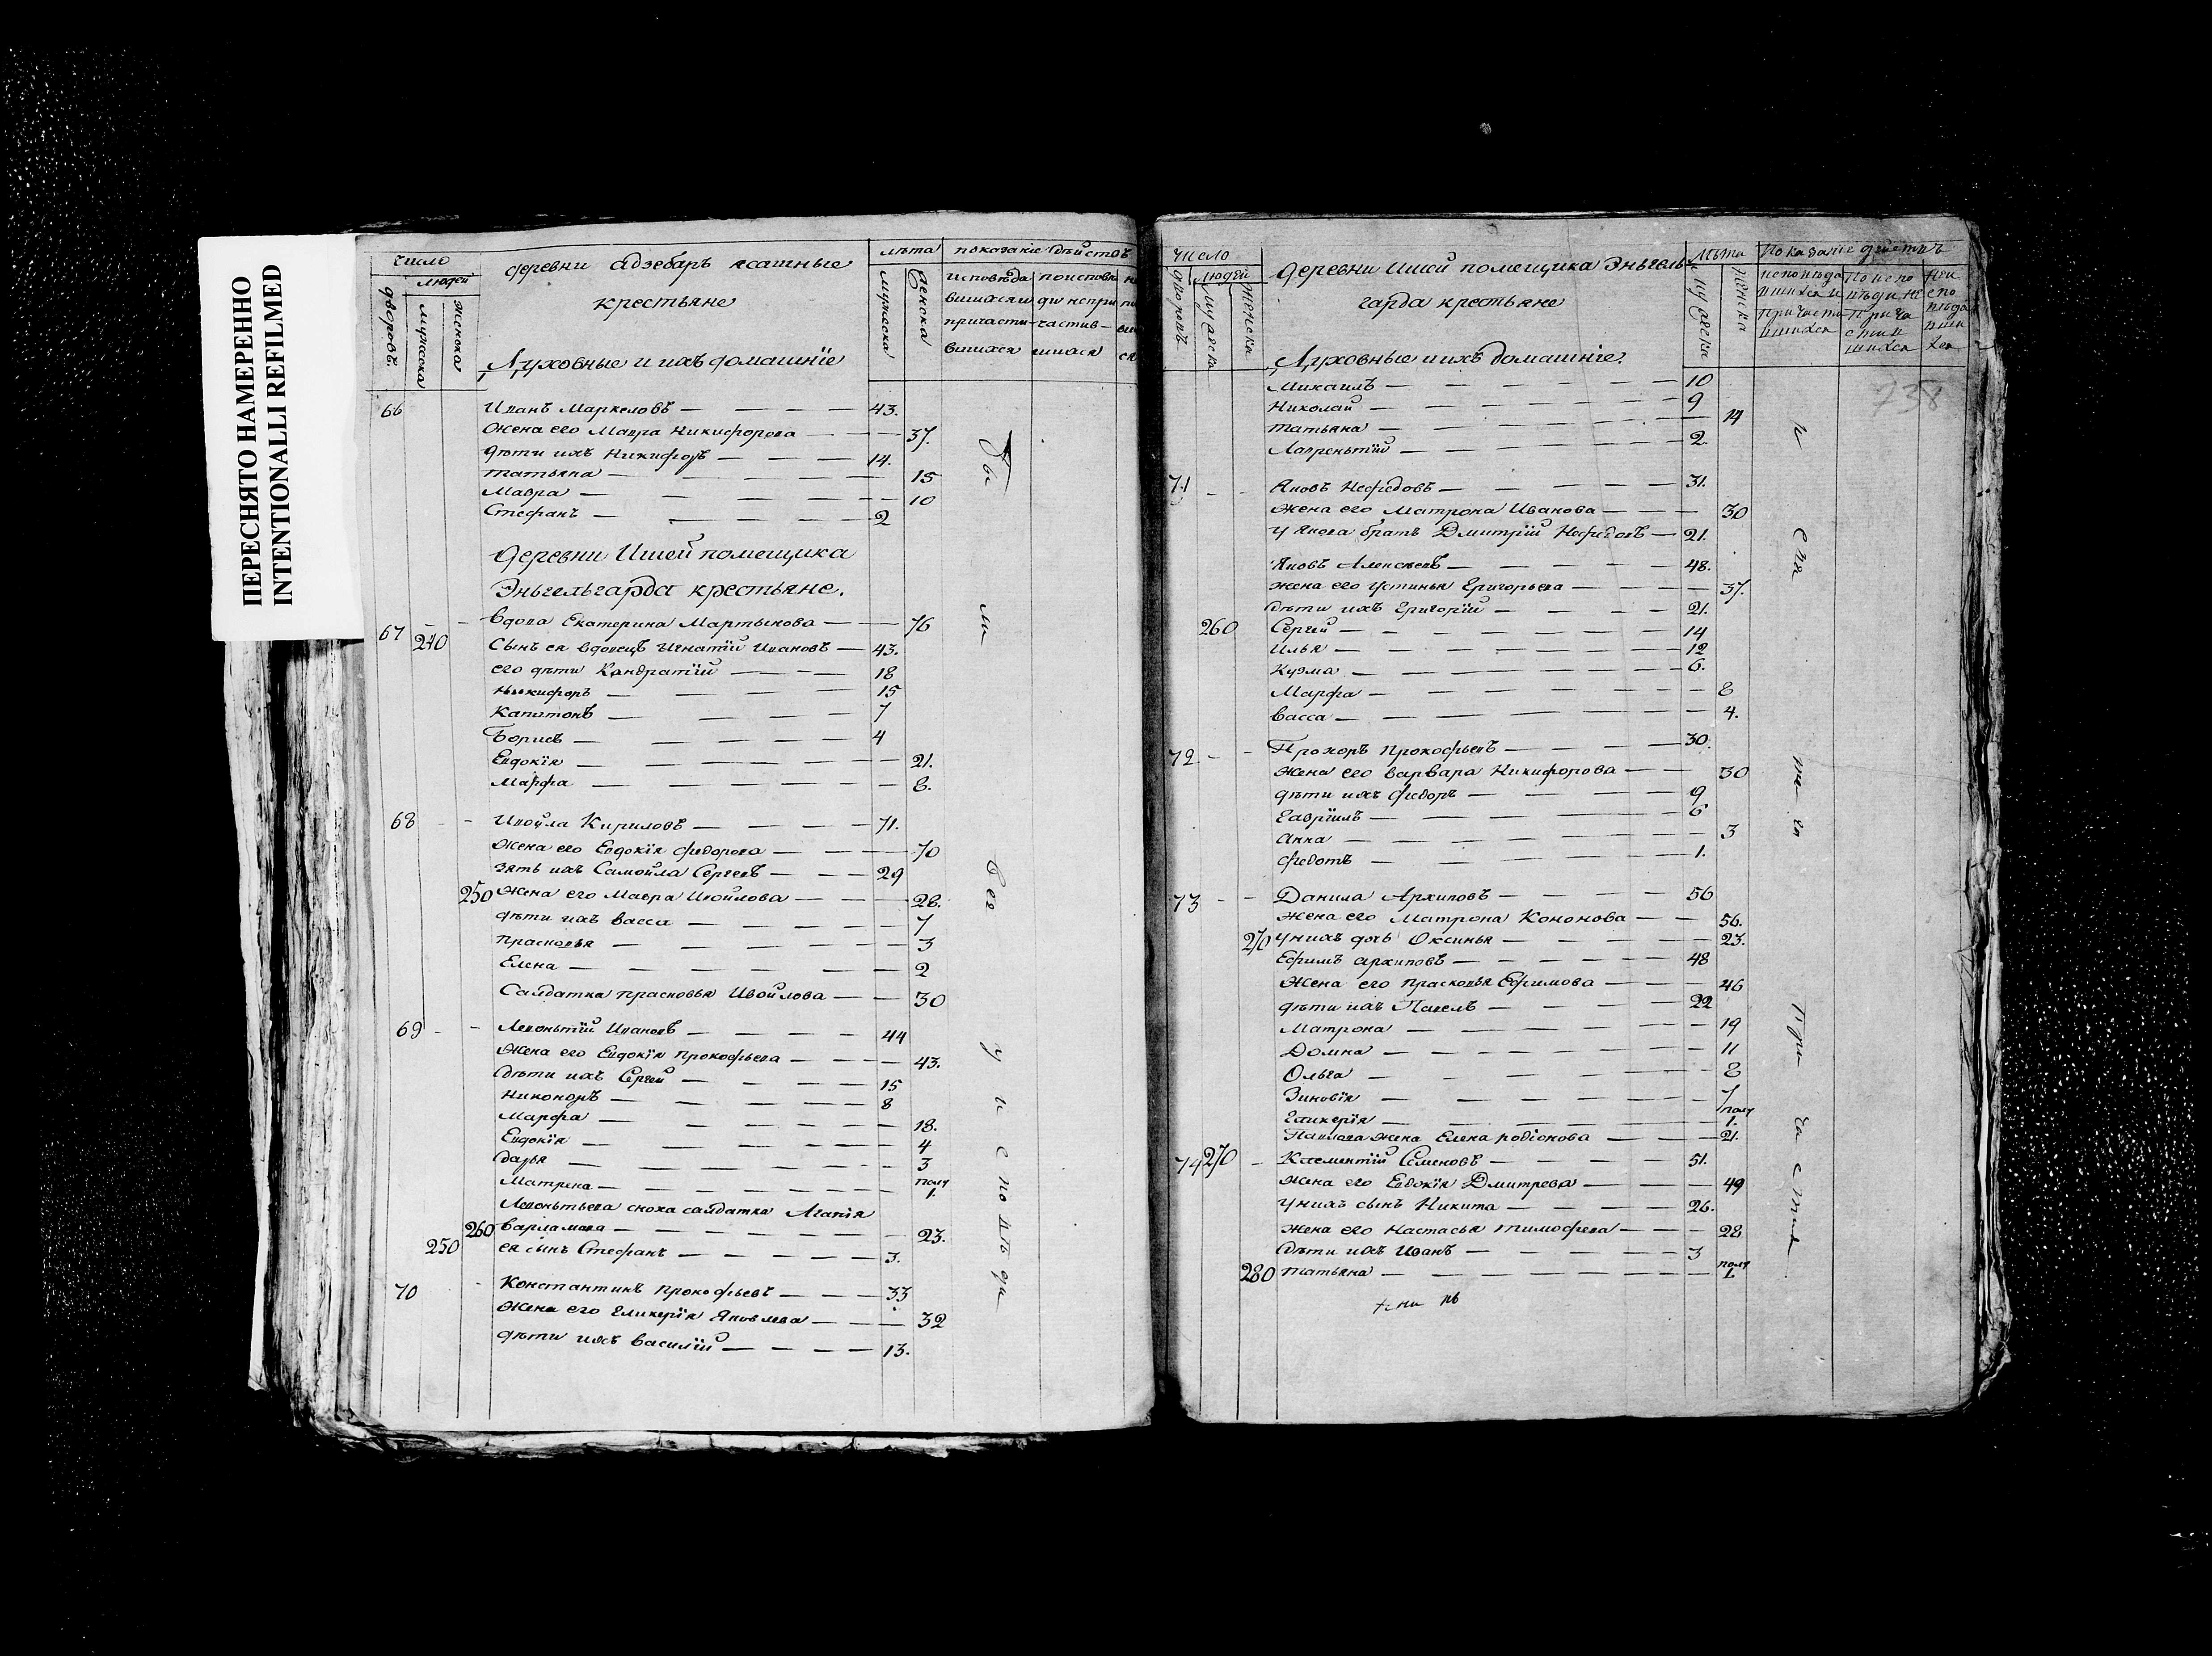 ПЕРЕСНЯТО НАМЕРЕННО
INTENTIONALLI REFILMED
число
людей
дворовъ.
мужеска
женска
деревни Адзебаръ ясашные
крестьяне
Духовные и ихъ домашнїе
лѣта
мужеска
женска
показанїе дѣйствъ
исповѣда
вшихся и
причасти-
вшихся
поисповѣ
ди непри
частив-
шихся
66 Иванъ Маркеловъ — 43.
Жена его Мавра Никифорова — 37.
дѣти ихъ Никифоръ — 14.
татьяна — 15
Мавра — 10
Стефанъ — 2
Деревни Ишей помещика
Эньгельгарда крестьяне.
67 вдова Екатерина Мартынова — 76
240 Сынъ ея вдовецъ Игнатїй Ивановъ — 43.
его дѣти Кандратїй — 18
Никифоръ — 15
Капитонъ — 7
Борисъ — 4
Евдокїя — 21.
Марфа — 8.
68 Ивойла Кириловъ — 71.
Жена его Евдокїя федорова — 70
зять ихъ Самойла Сергеевъ — 29
250 Жена его Мавра Ивойлова — 28.
дѣти ихъ васса — 7
прасковья — 3
Елена — 2
Салдатка прасковья Ивойлова — 30
69 Левоньтїй Ивановъ — 44
Жена его Евдокїя прокофьева — 43.
дѣти ихъ Сергей — 15
Никоноръ — 8
Марфа — 18.
Евдокїя — 4
дарья — 3
Матрена — полу 1.
Левоньтьева сноха салдатка Агапїя
260 варламова — 23.
250 ея сынъ Стефанъ — 3.
70 Константинъ прокофьевъ — 33
Жена его гликерїя Яковлева — 32
дѣти ихъ василїй — 13.
бы
ли
все
у исповѣди
число
людей
дворовъ
мужеска
женска
Деревни Ишей помещика Эньгель-
гарда крестьяне
Духовные и ихъ домашнїе.
лѣта
мужеска
женска
Показанїе действъ
исповѣда
вшихся и
причасти
вшихся
По испо
вѣди не
прича
стив
шихся
Неи
спо
вѣда
вши
хся
738
Михаилъ — 10
Николай — 9
татьяна — 14
Лаврентїй — 2.
71 Яковъ Нефедовъ — 31.
жена его Матрона Иванова — 30
у Якова братъ Дмитрїй Нефедовъ — 21.
Яковъ Алексеевъ — 48.
жена его устинья Григорьева — 37.
дѣти ихъ Григорїй — 21.
260 Сергей — 14
Илья — 12
Кузма — 6.
Марфа — 8
васса — 4.
72 Прохоръ прокофьевъ — 30.
жена его варвара Никифорова — 30
дѣти ихъ федоръ — 9
Гаврїилъ — 6
Анна — 3
федотъ — 1.
73 Данила Архиповъ — 56
жена его Матрона Кононова — 56.
270 у нихъ дочь Оксинья — 23.
Ефимъ архиповъ — 48
Жена его прасковья Ефимова — 46
дѣти ихъ Павелъ — 22
Матрона — 19
Домна — 11
Ольга — 8
Зиновїя — 7
Гликерїя — полу 1.
Павлова жена Елена родїонова — 21.
74 270 Клементїй Семеновъ — 51.
жена его Евдокїя Дмитрева — 49
у нихъ сынъ Никита — 26.
жена его Настасья тимофеева — 28
дѣти ихъ Иванъ — 3
280 татьяна — полу 1.
и
свя
та
го
При
ча
стїя